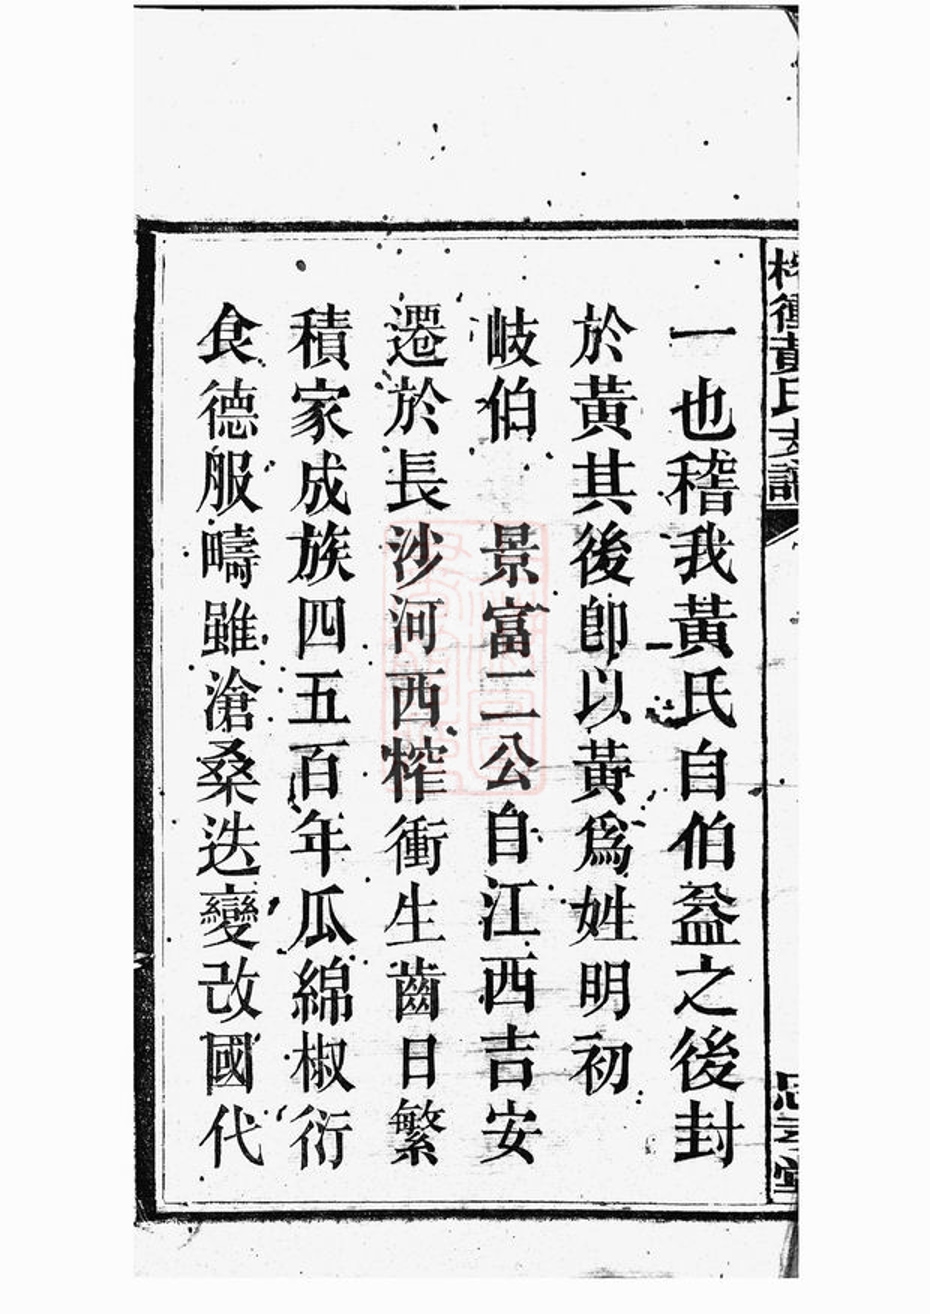 一也稽我黃氏自伯益之後封
於黃其後卽以黃爲姓明初
岐伯　景富二公自江西吉安
遷於長沙河西榨衝生齒日繁
積家成族四五百年瓜綿椒衍
食德服疇雖滄桑迭變改國代
衝黃氏支譜